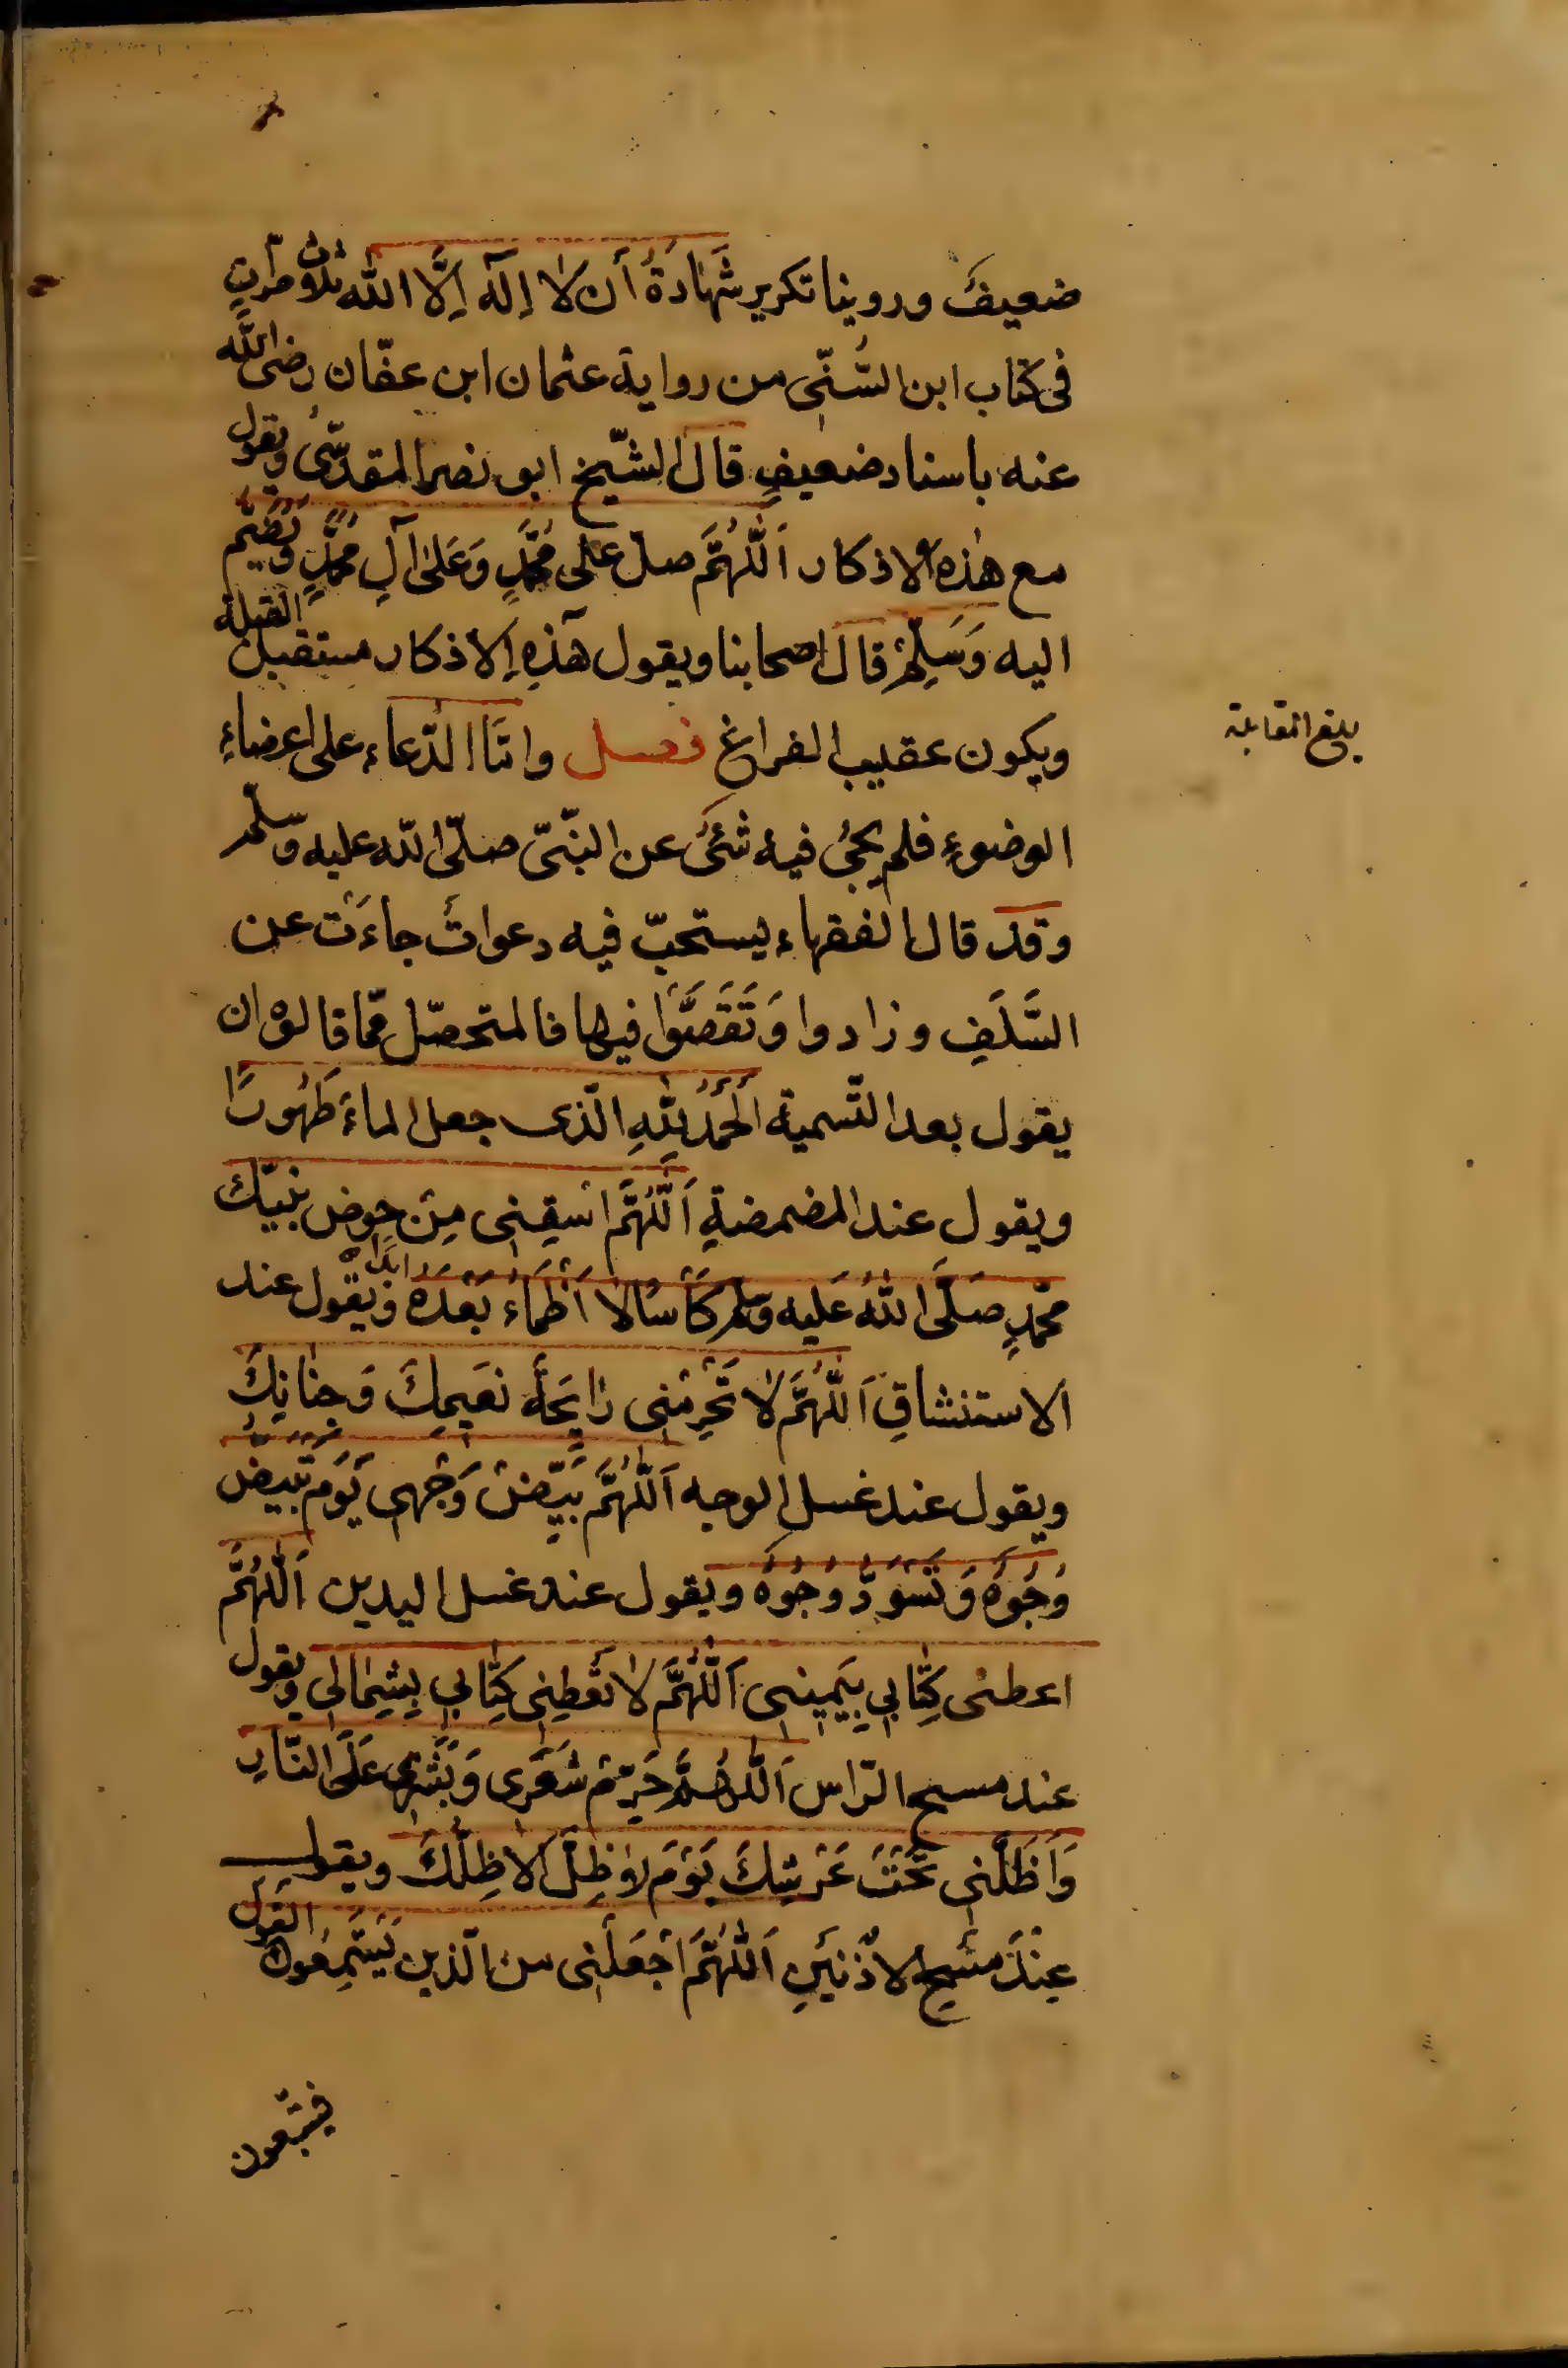 ضعيفٌ وروينا تكرير شَهَادَةُ أن لا إله إلَّا الله ثلاث مرّاتٍ
فى كتاب ابن السُّنّى من رواية عثمان ابن عفّان رضى الله
عنه باسناد ضعيفٍ قال الشّيخ ابو نصر المقدّسىُ ويقول
مع هٰذه الاذكار اَللّٰهُمَّ صل على مُحَمَّدٍ وَعَلىٰ آلِ مُحَمَّدٍ وَيَضُمّ
اليه وَسَلِّمْ قال اصحابنا ويقول هٓذِهِ الاذكار مستقبل القبلة
ويكون عقيب الفراغ فصل وامّا الدّعاء على اعضاءِ
الوضوءِ فلم يجئ فيه شئىٌ عن النّبىّ صلّى اللّه عليه وسلّم
وقد قال الفقهاء يستحبّ فيه دعواتٌ جاءَتْ عن
السَّلَفِ وزادوا وَنَقَصُوا فيها فالمتحصّل ممّا قالوه ان
يقول بعد التّسمية اَلْحَمْدُ لِلّٰهِ الّذى جعل الماءَ طَهُورًا
ويقول عند المضمضةِ اَللّٰهُمَّ اسْقِنِى مِنْ حوضِ نبيّك
محمّدٍ صَلَّى اللهُ عَليه وسلم كَأْسًا لا اَظْمَاءُ بَعْدَهُ ابدًا ويقول عند
الاستنشاقِ اَللّٰهُمَّ لا تَحْرِمْنِى رَايِحَةَ نَعِيمِكَ وَجِنَانِكَ
ويقول عند غسل الوجه اَللّٰهُمَّ بَيِّضْ وَجْهِى يَوْمَ تَبْيَضُّ
وُجُوهٌ وَتَسْوَدُّ وُجُوهٌ ويقول عند غسل اليدين اَللّٰهُمَّ
اعطنى كِتَابِى بِيَمِينِى اَللّٰهُمَّ لا تُعْطِنِى كِتَابِى بِشِمَالِى ويقول
عند مسح الرّاس اَللّٰهُمَّ حَرِّمْ شَعْرِى وَبَشَرِى عَلَى النّارِ
وَاَظِلَّنِى تَحْتَ عَرْشِكَ يَوْمَ لا ظِلَّ الا ظِلُّكَ ويقول
عِنْدَ مَسْحِ الاُذُنَيْنِ اَللّٰهُمَّ اجْعَلْنِى من الّذين يَسْتَمِعُونَ القَوْلَ
فيتّبعون
بلغ المقابلة